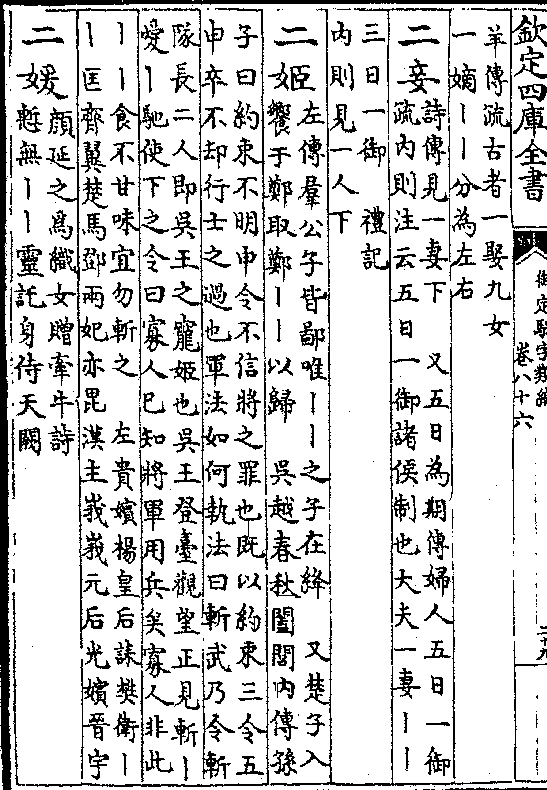 欽定四庫全書
御定駢字類編
卷八十六
羊傳疏古者一娶九女
一嫡丨丨分為左右
二妾
詩傳見一妻下 又五日為期傳婦人五日一御
疏内則注云五日一御諸侯制也大夫一妻丨丨
三日一御 禮記
内則見一人下
二姬
左傳羣公子皆鄙唯丨丨之子在絳 又楚子入
饗于鄭取鄭丨丨以歸 吳越春秋闔閭内傳孫
子曰約束不明申令不信將之罪也既以約束三令五
申卒不却行士之過也軍法如何執法曰斬武乃令斬
隊長二人即吳王之寵姬也吳王登臺觀望正見斬丨
愛丨馳使下之令曰寡人已知將軍用兵矣寡人非此
丨丨食不甘味宜勿斬之 左貴嬪楊皇后誄樊衛丨
丨匡齊翼楚馬鄧兩妃亦毘漢主峩峩元后光嬪晉宇
二媛
顔延之爲織女贈牽牛詩
慙無丨丨靈託身侍天闕